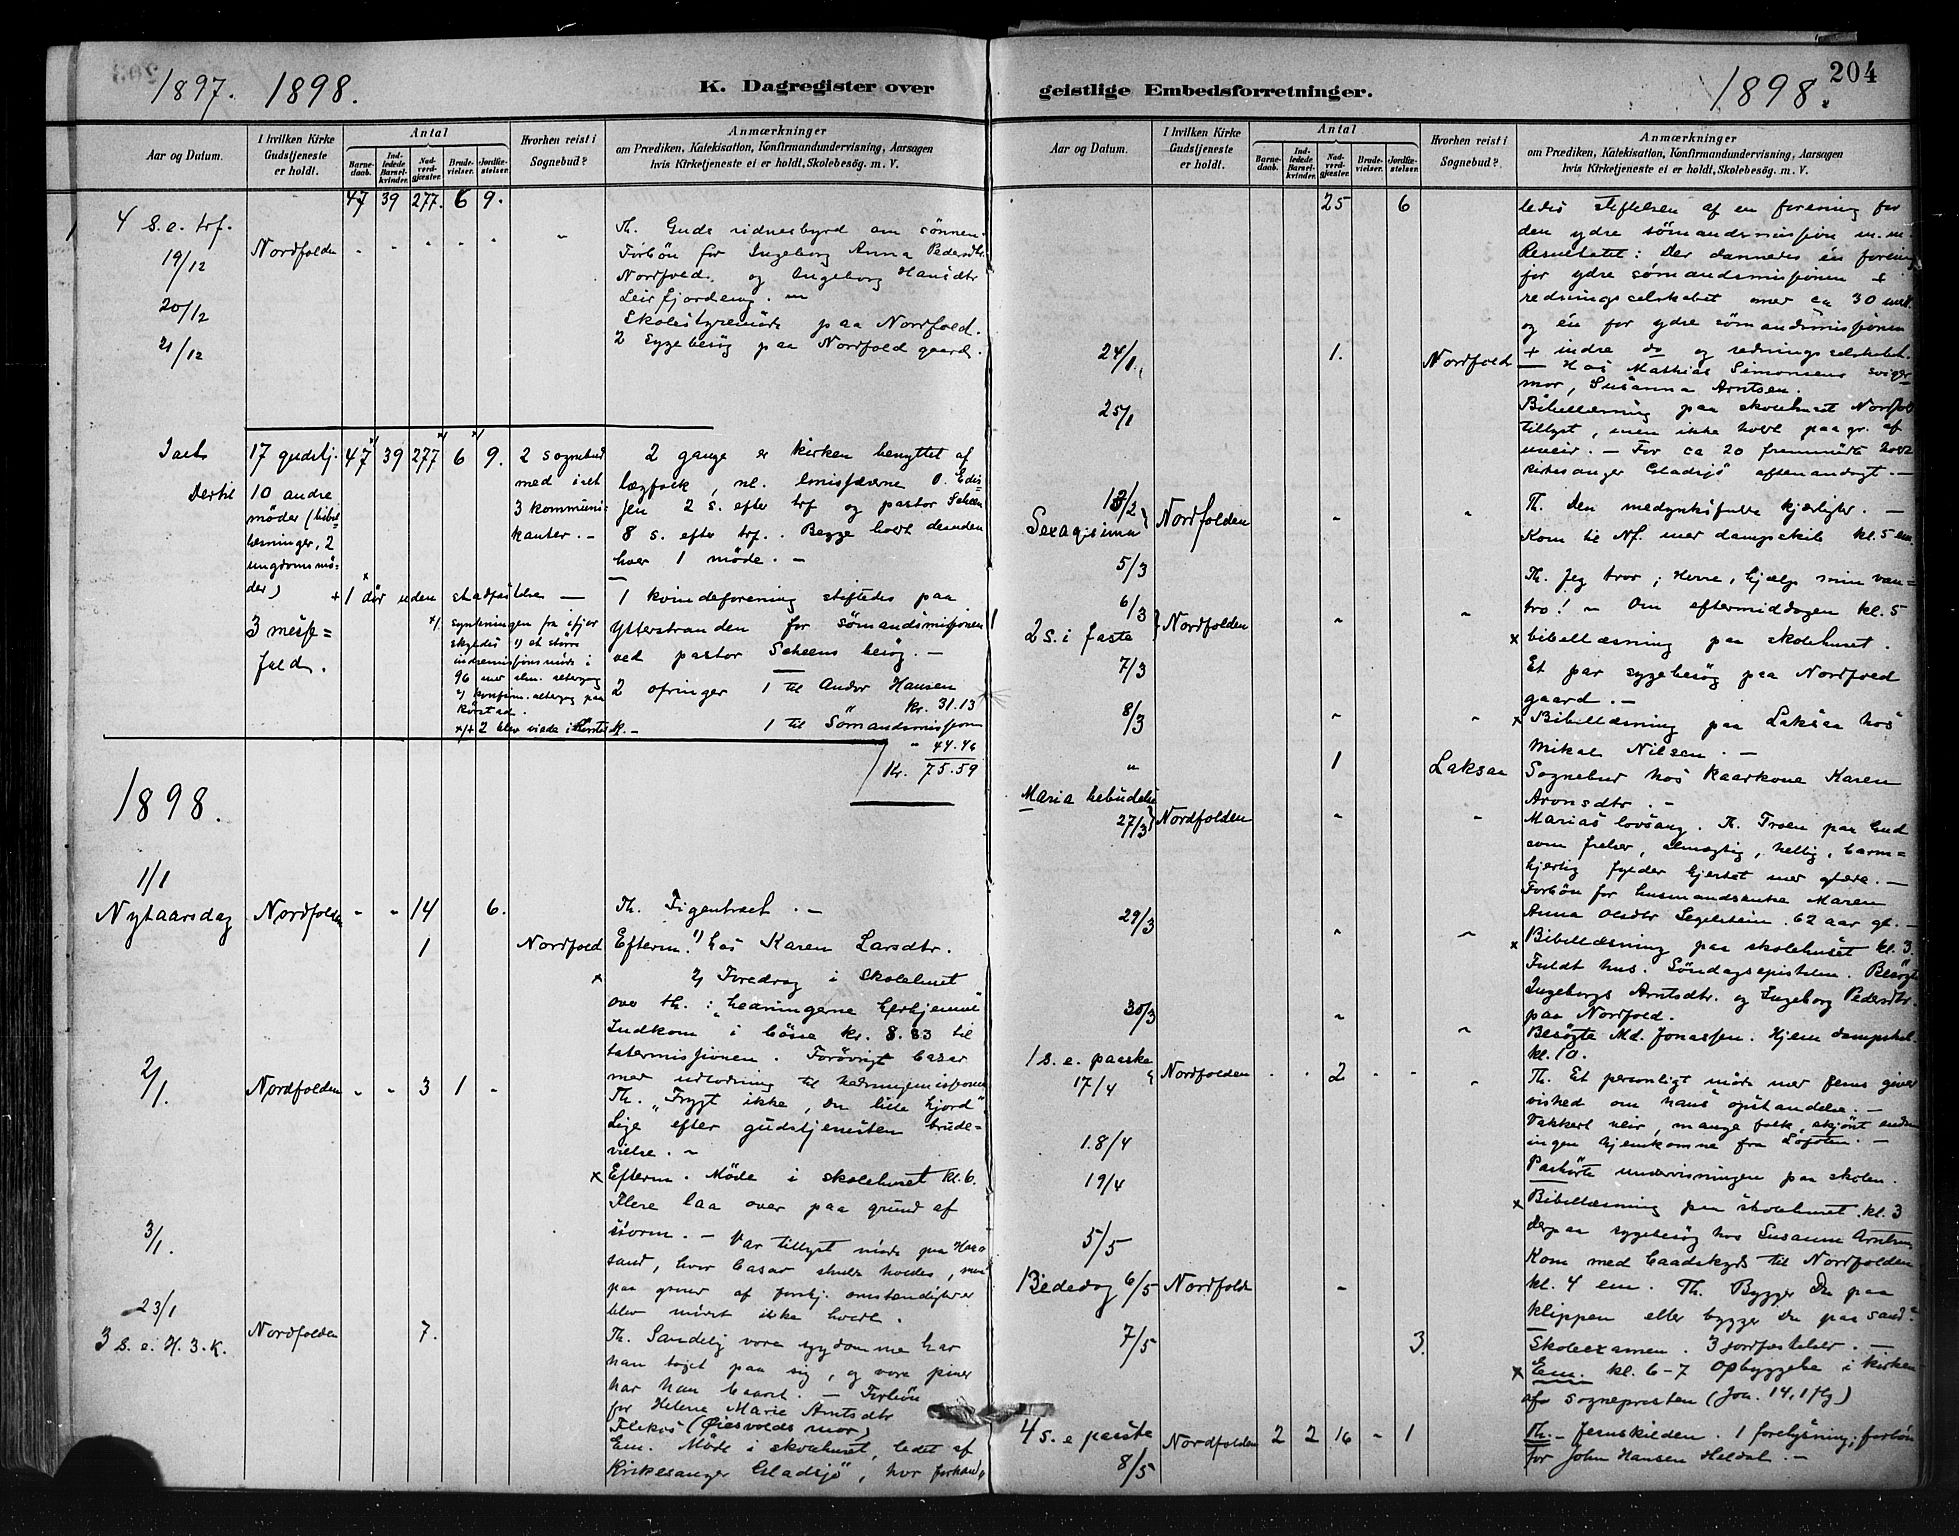 1897. 1898.
K. Dagregister over
Aar og Datum.
I hvilken Kirke Gudstjeneste er holdt.
Antal
Barnedaab.
Indledede Barselkvinder.
Nadverdgjæster.
Brudevielser.
Jordfæstelser.
Hvorhen reist i Sognebud?
Anmærkninger
om Prædiken, Katekisation, Konfirmandundervisning, Aarsagen
hvis Kirketjeneste ei er holdt, Skolebesög. m. V.
47 39 277. 6 9.
4 s. e. trf.
19/12 Nordfolden - - - - - "
Th. Guds vidnesbyrd om sönnen.
Forbön for Ingeborg Anna Pedersdtr.
Nordfold og Ingeborg Hansdtr
Leirfjordeng. -
20/12
Skolestyremöde paa Nordfold.
21/12
2 Sygebesög paa Nordfold gaard.
Ialt 17 gudstj. 47 39 277 6 9.
2 sognebud
med ialt
3 kommuni-
kanter. -
2 gange er kirken benyttet af
lægfolk, nl. emissærerne O. Edis-
sen 2 s. efter trf og pastor Scheen
8 s. efter trf. Begge holdt desuden
hver 1 möde. -
Dertil
10 andre
möder (bibel
læsninger, 2
ungdomsmö-
der)
+ 1 dör uden stadfæstelse -
3 messe=
fald.
synkningen fra ifjor
skyldes 1) et större
indremissjonsmöde i
96 med alm. altergang
2) konfirm. altergang paa
Kjerstad.
2 blev viede i
1 kvindeforening stiftedes paa
Ytterstranden for sömandsmissjonen
ved pastor Scheens besög. -
2 ofringer 1 til Andor Hansen
kr. 31.13
1 til Sömandsmissjon
" 44.46
Kr. 75.59
1898.
1/1
Nytaarsdag Nordfolden - - 14 6.
Th. Figentræet. -
1 Nordfold
Efterm. 1) hos Karen Larsdtr.
x 2) Foredrag i skolehuset
over th.: "Hedningerne herhjemme"
Indkom i bösse kr. 8.83 til
Forövrigt basar
med udlodning til hedningemissjonen
2/1. Nordfolden - - 3 1 -
Th. "Frygt ikke, du lille hjord"
Lige efter gudstjenesten brude=
vielse. -
x Efterm. Möde i skolehuset kl. 6.
Flere laa over paa grund af
storm. -
3/1.
Var tillyst möde paa
sand, hvor basar skulde holdes, men
paa grund af forskj. omstændigheder
blev mödet ikke holdt.
23/1
3 s. e. H. 3. K. Nordfolden 7.
Th. Sandelig vore sygdomme har
han taget paa sig, og vore piner
har han baaret. - Forbön
for Helene Marie Arntsdtr
(Öiesvolds mor)
Em. Möde i skolehuset, ledet af
Kirkesanger Gladsjö, hvor forhand-
geistlige Embedsforretninger.
1898.
204
Aar og Datum.
I hvilken Kirke Gudstjeneste er holdt.
Antal
Barnedaab.
Indledede Barselkvinder.
Nadverdgjæster.
Brudevielser.
Jordfæstelser.
Hvorhen reist i Sognebud?
Anmærkninger
om Prædiken, Katekisation, Konfirmandundervisning, Aarsagen
hvis Kirketjeneste ei er holdt, Skolebesög. m. V.
25 6
ledes stiftelsen af en forening for
den ydre sømandsmission m. m.
Resultatet: Der dannedes én forening
for ydre sømandsmissionen +
redningsselskabet med ca 30 medl.
og én for ydre sømandsmissjonen
+ indre do og redningsselskabet.
24/1 1. Nordfold
- Hos Mathias Simonsens sviger
mor, Susanna Arntsen.
25/1
Bibellæsning paa skolehuset Nordfold
tillyst, men ikke holdt paa gr. af
uveir. - For ca 20 fremmödte holdt
kirkesanger Gladsjö aftenandagt. -
13/2
Sexagisima Nordfolden " "
Th. Den medynksfulde kjærlighet. -
5/3
Kom til Nf. med dampskib kl. 5 em.
6/3
2 s. i faste Nordfolden " "
Th. Jeg tror; Herre, hjælp min van=
tro! - Om eftermiddagen kl. 5
x bibellæsning paa skolehuset.
7/3
Et par sygebesög paa Nordfold
gaard. -
8/3 " "
x Bibellæsning paa Laksaa hos
Mikal Nilsen. -
" 1 Laksaa
Sognebud hos kaarkone Karen
Aronsdtr. -
Maria bebudelse
27/3 Nordfolden " "
Marias lovsang. Th. Troen paa Gud
som frelser, almægtig, hellig, barm=
hjertig fylder hjertet med glæde. -
Forbön for husmandsenke Maren
Anna Olsdtr 62 aar gl. -
29/3 " "
x Bibellæsning paa skolehuset kl. 3.
Fuldt hus. Söndagsepistelen. Besögte
Ingeborg Arntsdtr. og Ingeborg Pedersdtr.
paa Nordfold.
30/3 " "
Besögte Md. Jonassen. Hjem dampskib
kl. 10.
1 s. e. paaske
17/4 Nordfolden - - 2 - - "
Th. Et personligt möde med Jesus giver
vished om hans opstandelse. -
Vakkert veir, mange folk, skjönt endnu
ingen hjemkomne fra Lofoten. -
18/4
Paahörte undervisningen paa skolen.
19/4
x Bibellæsning paa skolehuset kl. 3
derpaa sygebesög hos Susanna Arntsen
5/5
Kom med baadskyds til Nordfolden
kl. 4 em.
Bededag 6/5 Nordfold "
Th. Bygger Du paa
klippen eller bygger du paa sand?
7/5 3.
Skoleexamen. 3 jordfæstelser. -
x Em. kl. 6-7 Opbyggelse i kirken
af sognepresten (Joh. 14,1 flg)
4 s. e paaske
8/5 Nordfolden 2 2 16 - 1
Th. - Jesuskilden. 1 forelysning; forbön
for John Hansen Heldal. -